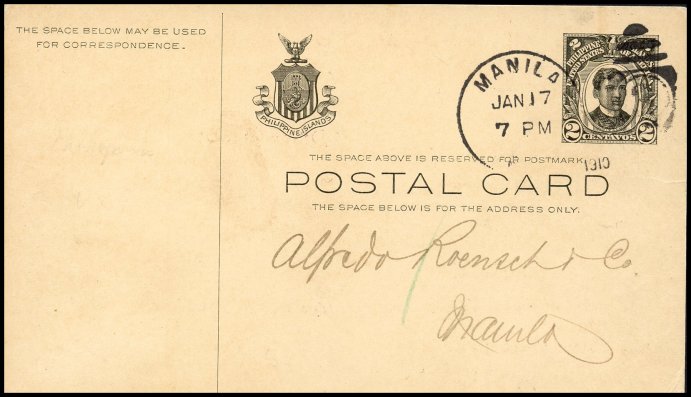 THE SPACE BELOW MAY BE USED
FOR CORRESPONDENCE.
PHILIPPINE ISLANDS
MANILA
JAN 17
7 PM
1910
2
PHILIPPINE
UNITED STATES
2 CENTAVOS 2
THE SPACE ABOVE IS RESERVED FOR POSTMARK
POSTAL CARD
THE SPACE BELOW IS FOR THE ADDRESS ONLY.
Alfredo Roensch & Co.
Manila